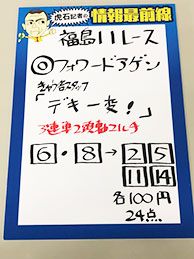 虎石記者の
情報最前線
福島11レース
◎フォワードアゲン
きゅう舎スタッフ
「デキ一変！」
3連単2頭軸マルチ
6・8→2 5
11 14
各100円
24点